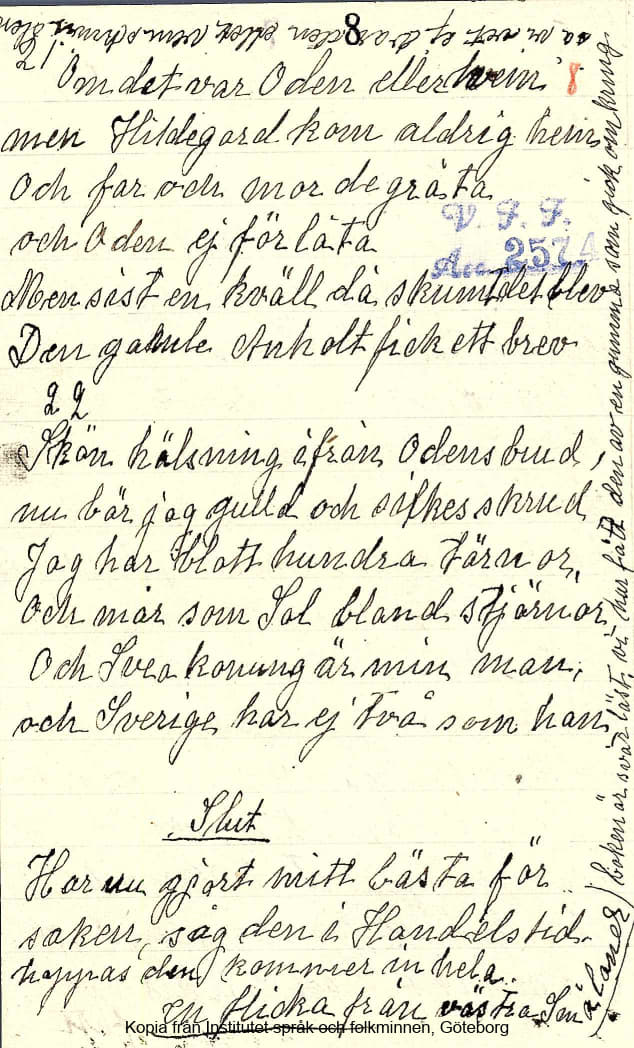 8
21
Om det var Oden eller hvem 8
men Hildegard kom aldrig hem
Och far och mor de gråta
och Oden ej förlåta
V. F. F.
Acc 2574
Men sist en kväll då skumt det blev
Den gamle Anholt fick ett brev
22
Skön hälsning ifrån Odens bud,
nu bär jag guld och silkesskrud
Jag har blott hundra tärnor,
Och mår som Sol bland stjärnor
Och Svea konung är min man,
och Sverige har ej två som han
Slut
Har nu gjort mitt bästa för
saken, såg den i Handelstid.
hoppas den kommer in hela.
en flicka från västra Små
aland
boken är svår läst, vi har fått den av en gumma som gick omkring.
Kopia från Institutet språk och folkminnen, Göteborg